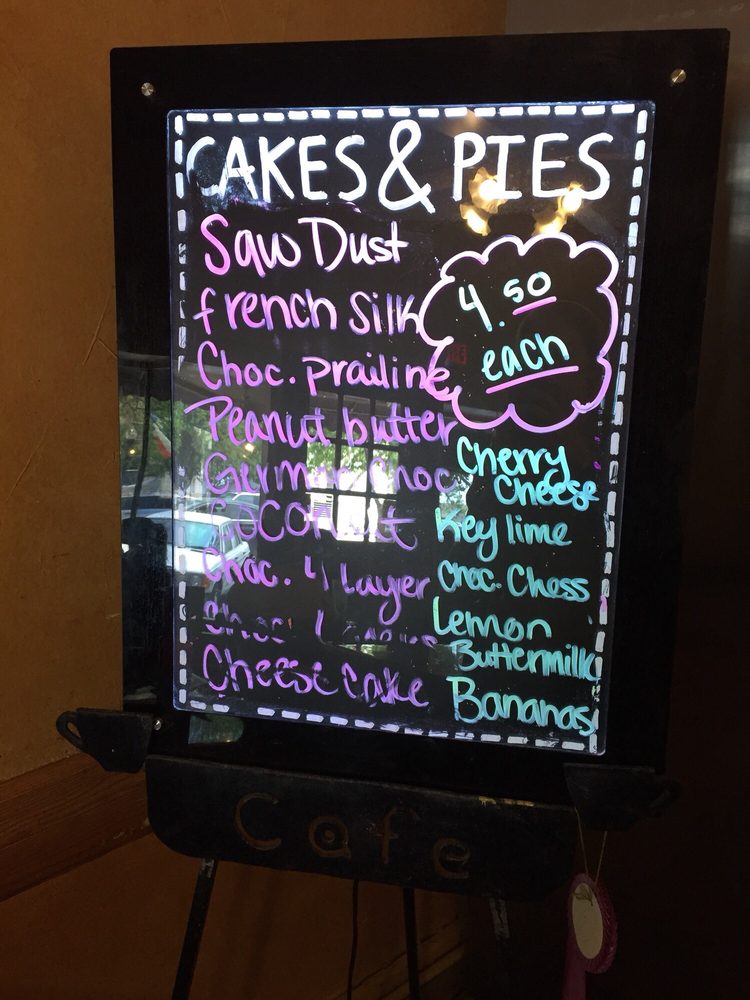 CAKES & PIES
Saw Dust
french Silk
Choc. prailine
Peanut butter
German Choc
Coconut
Choc. 4 Layer
Cheese cake
4.50
each
Cherry
Cheese
Key lime
Choc. Chess
Lemon
Buttermilk
Bananas
Cafe